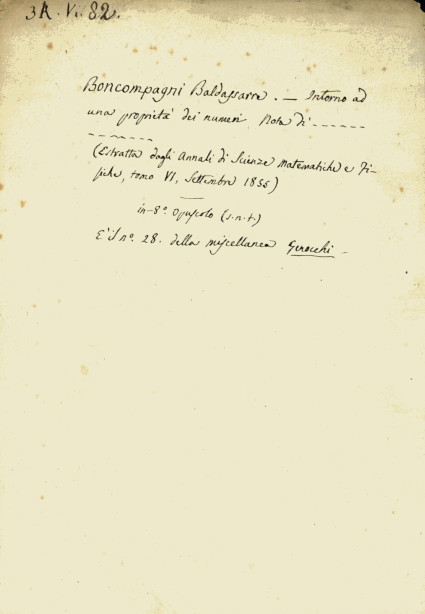 3R. VI. 82.
Boncompagni Baldassarre. — Intorno ad
una proprietà dei numeri Nota di ------
-------
(Estratta dagli Annali di Scienze Matematiche e Fi-
siche, tomo VI, Settembre 1855)
in-8º Opuscolo (s.n.t.)
E' il nº. 28. della miscellanea Genocchi -